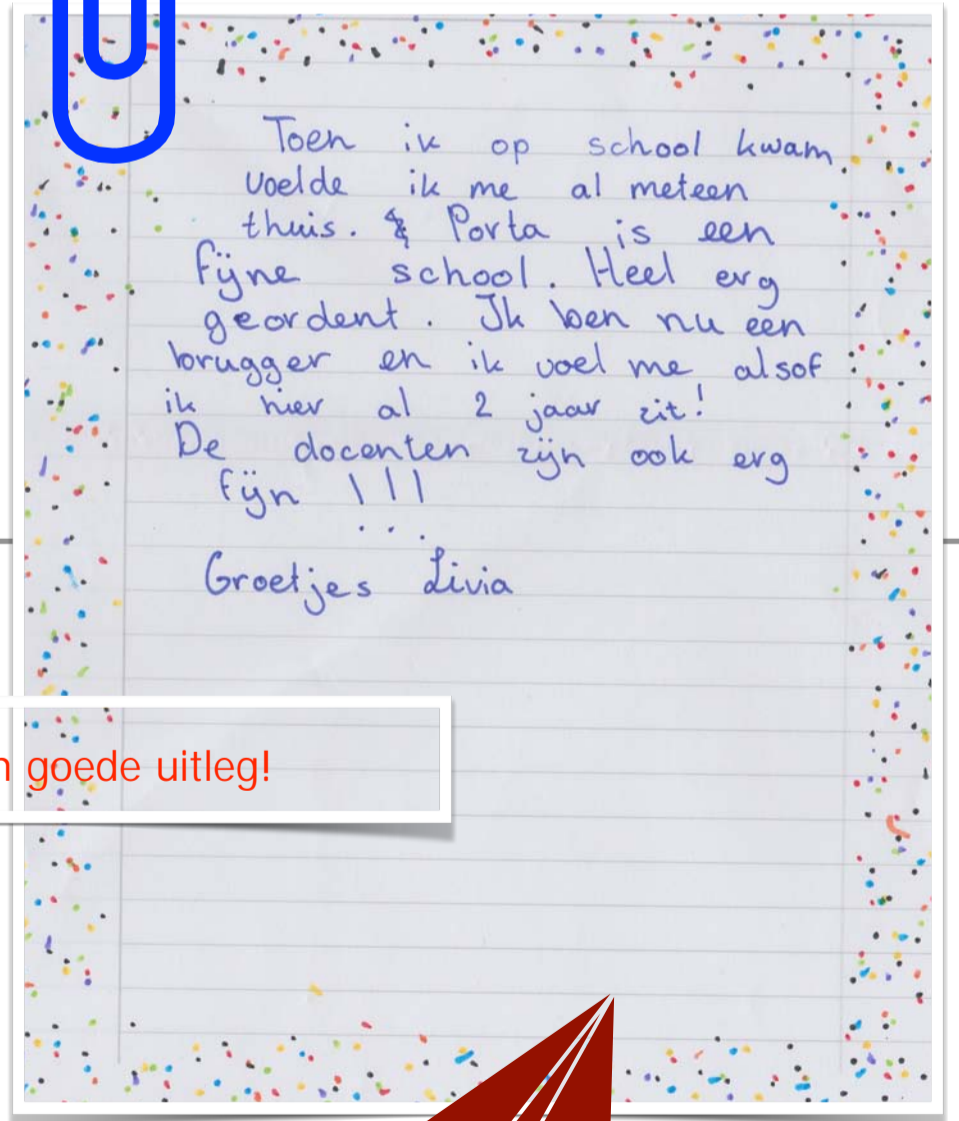 Toen ik op school kwam
voelde ik me al meteen
thuis. Porta is een
fijne school. Heel erg
geordent. Ik ben nu een
brugger en ik voel me alsof
ik hier al 2 jaar zit!
De docenten zijn ook erg
fijn !!!
Groetjes Livia
goede uitleg!